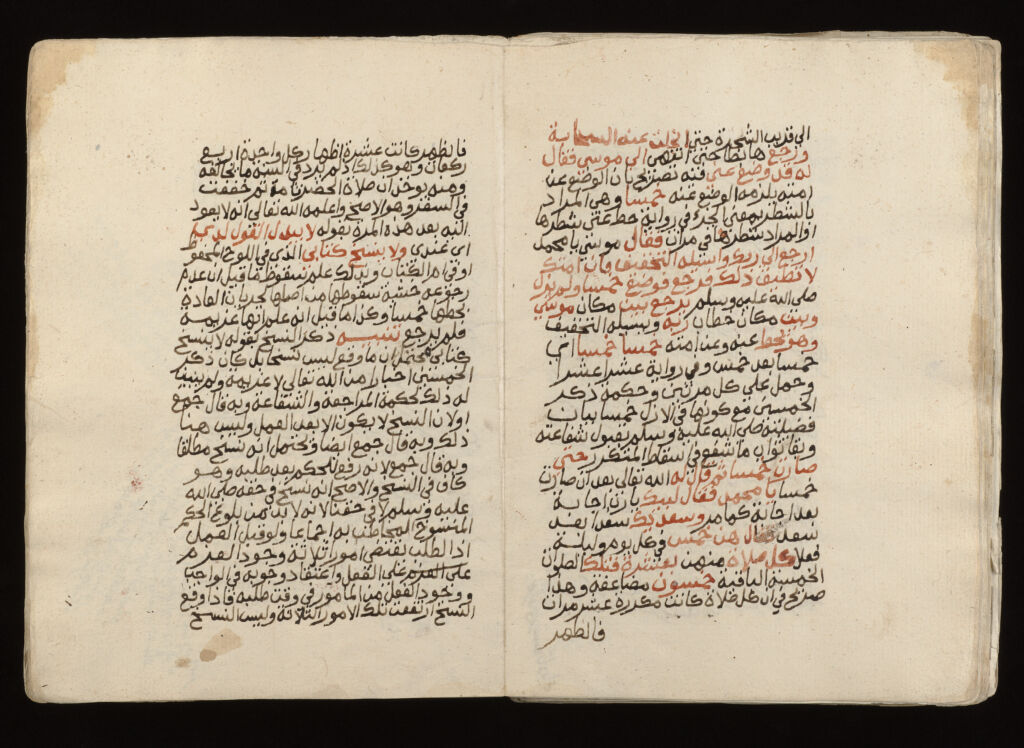 الى قريب الشجرة حتى انجلت عنه السحابة
ورجع هابطا حتى انتهى الى موسى فقال
له قد وضع عني فنه نصر بحيان الوضع عن
امته يلزمه الوضع عنه خمسا وهي المراد
بالشطر بمعنى الجزء في رواية حط عني شطرها
او المراد شطرها في مرات فقال موسى يا محمد
ارجع الى ربك واسئله التخفيف فان امتك
لا تطيق ذلك فرجع فوضع خمسا ولم يزل
صلى الله عليه وسلم يرجع بين مكان موسى
وبين مكان خطاب ربه ويسئله التخفيف
وهو يحط عنه وعن امته خمسا خمسا اي
خمسا بعد خمس وفي رواية عشرا عشرا
وحمل على كل مرتين وحكمة ذكر
الخمسين مع كونها في الازل خمسا بيان
فضيلته صلى الله عليه وسلم بقبول شفاعته
وبقا ثواب ما شفع في اسقاط المتكرر حتى
صارت خمسا ثم قال له الله تعالى بعد ان صارت
خمسا يا محمد فقال لبيك يا رب اجابة
بعد اجابة كما مر وسعديك سعدا بعد
سعد فقال هن خمس في كل يوم وليلة
فعلا كل صلاة منهن بعشرة فتلك الصلوات
الخمسة الباقية خمسون مضاعفة وهذا
صريح في ان كل صلاة كانت مكررة عشر مرات
فالظهر
فالظهر كانت عشرة اظهار كل واحدة اربع
ركعات وهو كذلك اذ لم يرد في السنة ما يخالفه
ومنه يوخذ ان صلاة الحضر تامة ثم خففت
في السفر وهو الاصح واعلمه الله تعالى انه لا يعود
اليه بعد هذه المرة بقوله لا يبدل القول لدي
اي عندي ولا ينسخ كتابي الذي في اللوح المحفوظ
او في ام الكتاب وبذلك علم سقوط ما قيل ان عدم
رجوعه خشية سقوطها من اصلها لجريان العادة
بحطها خمسا وكذا ما قيل انه علم انها عزيمة
فلم يرجع تنبيه ذكر النسخ بقوله لا ينسخ
كتابي محتمل ان ما وقع ليس نسخا بل كان ذكر
الخمسين اخبارا من الله تعالى لا عزيمة ولم يبين
له ذلك لحكمة المراجعة والشفاعة وبه قال جمع
اولان النسخ لا يكون الا بعد العمل وليس هنا
ذلك وبه قال جمع ايضا ويحتمل انه نسخ مطلقا
وبه قال جمع لانه رفع للحكم بعد طلبه وهو
كاف في النسخ والاصح انه نسخ في حقه صلى الله
عليه وسلم لا في حقنا لانه لا بد من بلوغ الحكم
المنسوخ المخاطب به اجماعا ولو قبل العمل
اذا الطلب يقتضي امورا ثلاثة وجود العزم
على العزم على الفعل واعتقاد وجوبه في الواجب
ووجود الفعل من المامور في وقت طلبه فاذا وقع
النسخ ارتفعت تلك الامور الثلاثة وليس النسخ